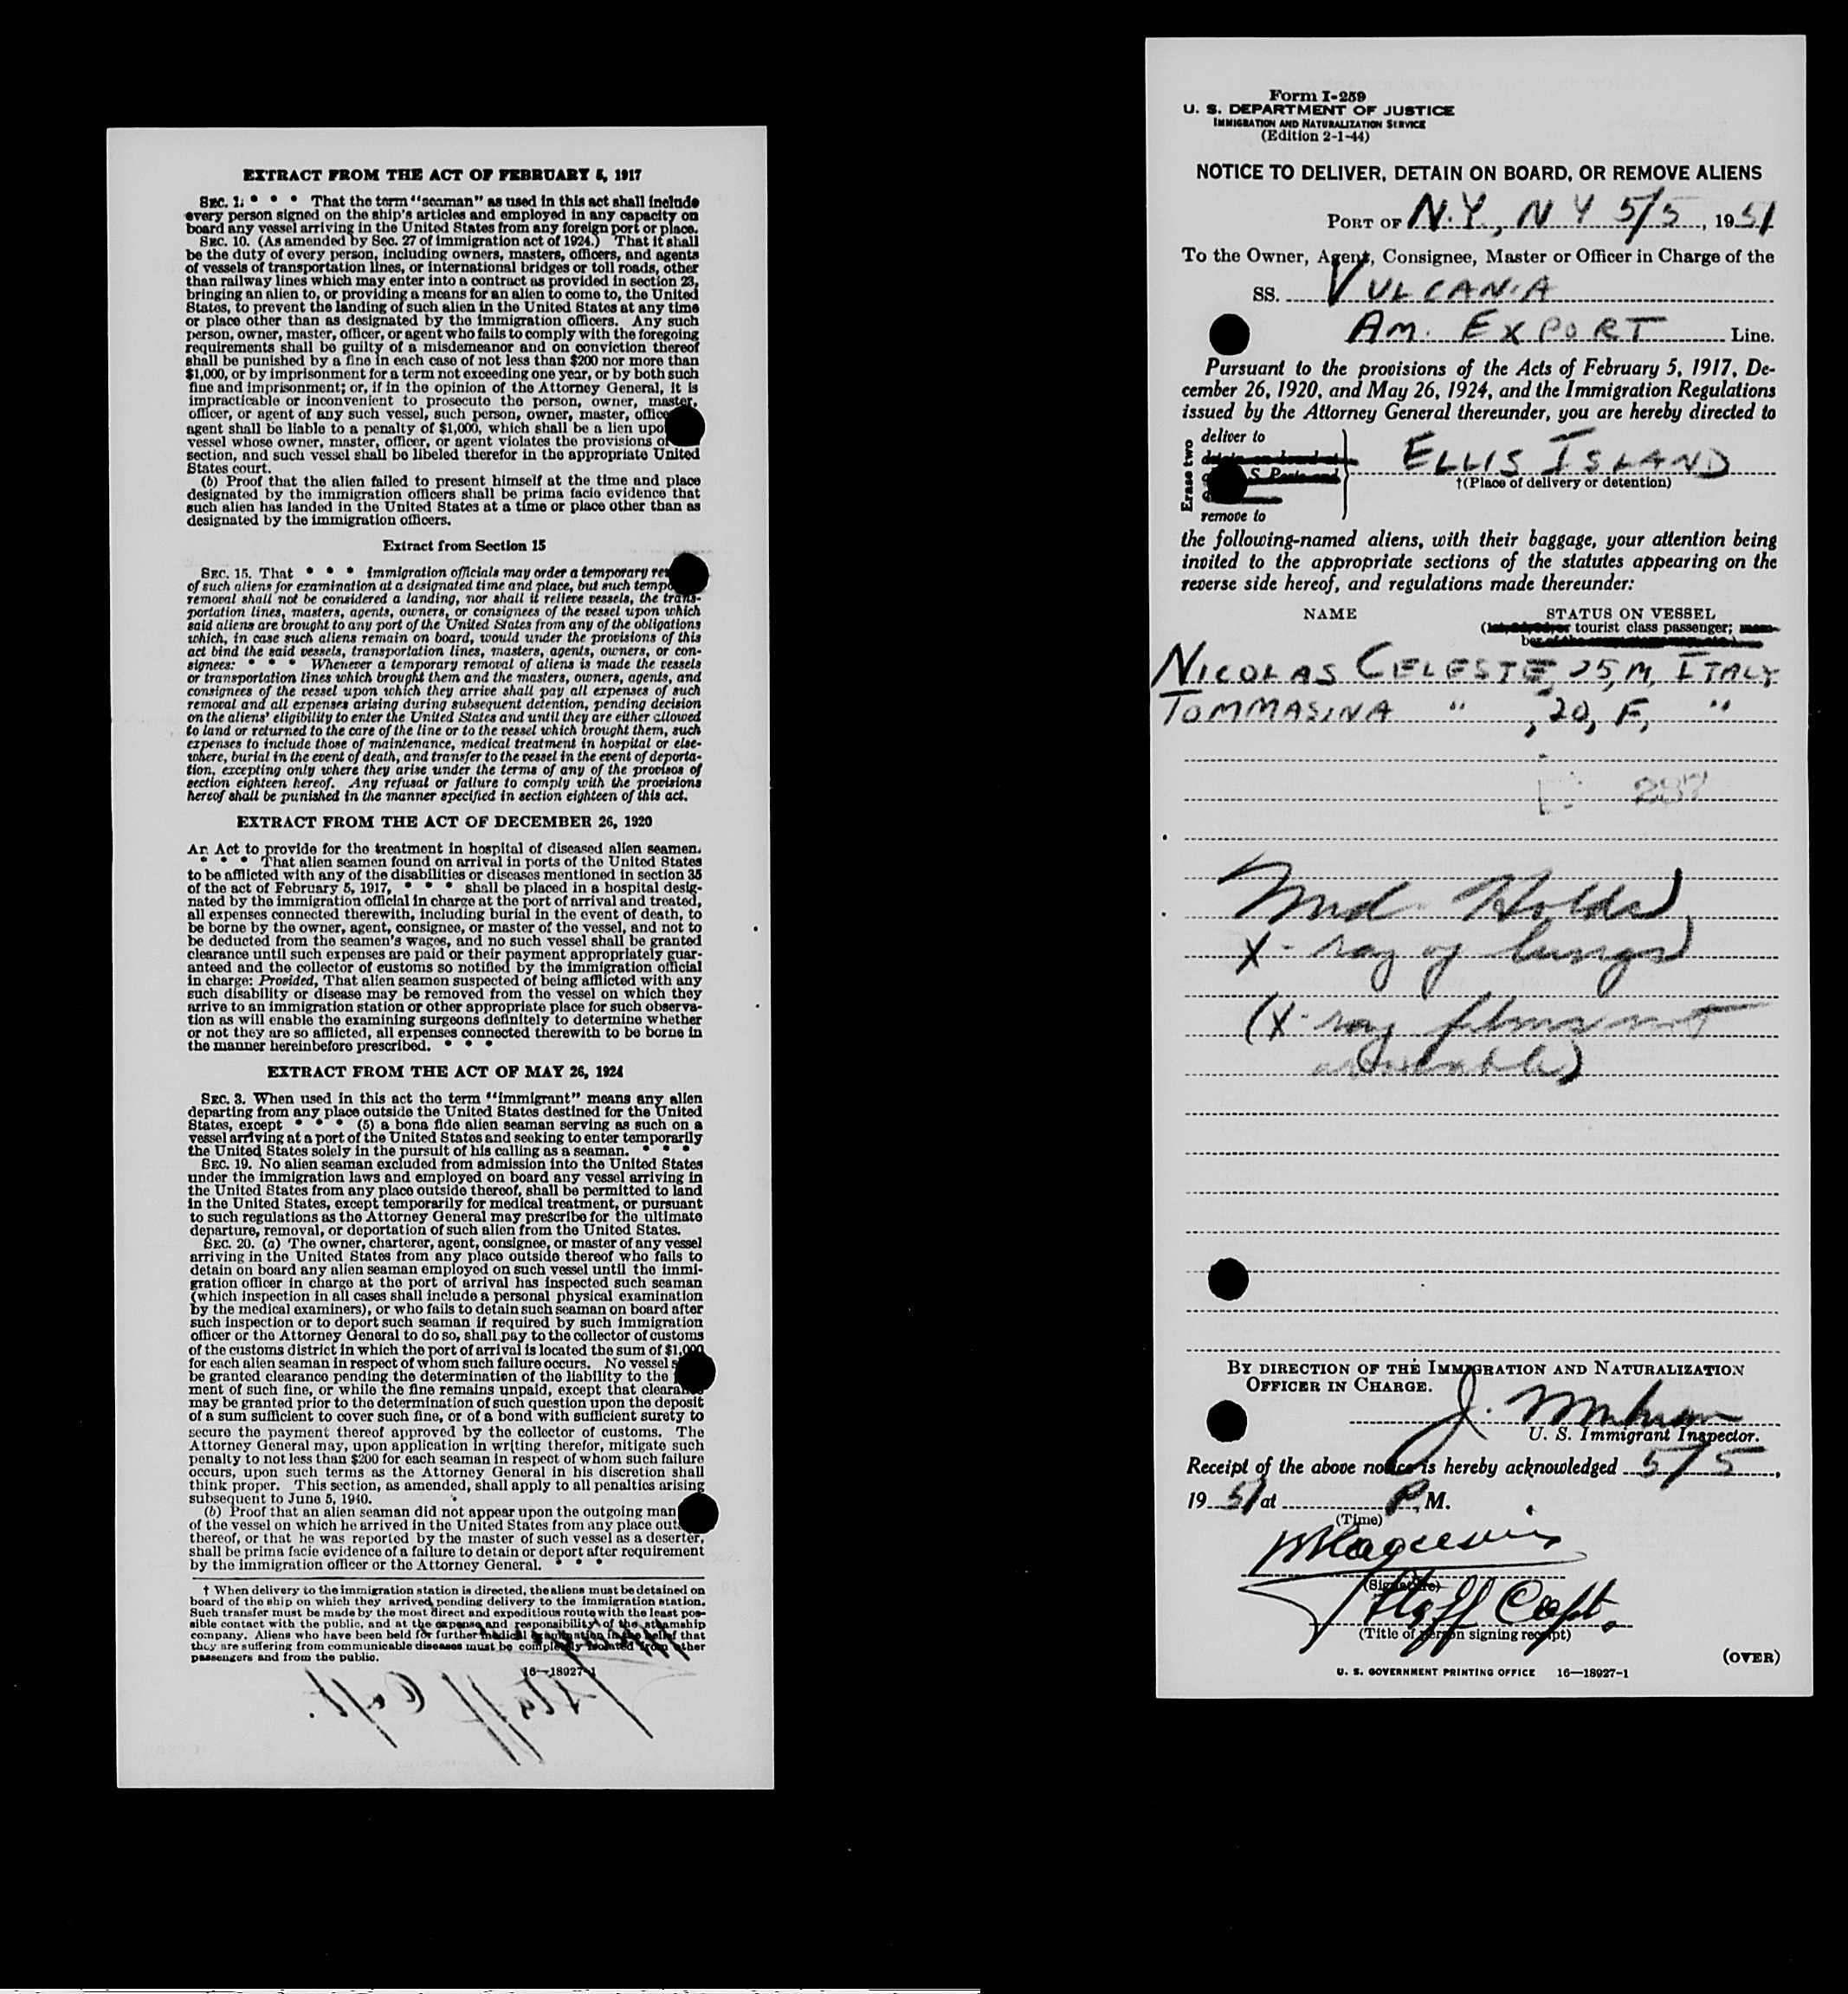 EXTRACT FROM THE ACT OF FEBRUARY 5, 1917
SEC. 1. * * * That the term "seaman" as used in this act shall include
every person signed on the ship's articles and employed in any capacity on
board any vessel arriving in the United States from any foreign port or place.
SEC. 10. (As amended by Sec. 27 of immigration act of 1924.) That it shall
be the duty of every person, including owners, masters, officers, and agents
of vessels of transportation lines, or international bridges or toll roads, other
than railway lines which may enter into a contract as provided in section 23,
bringing an alien to, or providing a means for an alien to come to, the United
States, to prevent the landing of such alien in the United States at any time
or place other than as designated by the immigration officers. Any such
person, owner, master, officer, or agent who fails to comply with the foregoing
requirements shall be guilty of a misdemeanor and on conviction thereof
shall be punished by a fine in each case of not less than $200 nor more than
$1,000, or by imprisonment for a term not exceeding one year, or by both such
fine and imprisonment; or, if in the opinion of the Attorney General, it is
impracticable or inconvenient to prosecute the person, owner, master,
officer, or agent of any such vessel, such person, owner, master, office
agent shall be liable to a penalty of $1,000, which shall be a lien upo
vessel whose owner, master, officer, or agent violates the provisions of
section, and such vessel shall be libeled therefor in the appropriate United
States court.
(b) Proof that the alien failed to present himself at the time and place
designated by the immigration officers shall be prima facie evidence that
such alien has landed in the United States at a time or place other than as
designated by the immigration officers.
Extract from Section 15
SEC. 15. That * * * immigration officials may order a temporary re
of such aliens for examination at a designated time and place, but such tempo
removal shall not be considered a landing, nor shall it relieve vessels, the trans-
portation lines, masters, agents, owners, or consignees of the vessel upon which
said aliens are brought to any port of the United States from any of the obligations
which, in case such aliens remain on board, would under the provisions of this
act bind the said vessels, transportation lines, masters, agents, owners, or con-
signees: * * * Whenever a temporary removal of aliens is made the vessels
or transportation lines which brought them and the masters, owners, agents, and
consignees of the vessel upon which they arrive shall pay all expenses of such
removal and all expenses arising during subsequent detention, pending decision
on the aliens' eligibility to enter the United States and until they are either allowed
to land or returned to the care of the line or to the vessel which brought them, such
expenses to include those of maintenance, medical treatment in hospital or else-
where, burial in the event of death, and transfer to the vessel in the event of deporta-
tion, excepting only where they arise under the terms of any of the provisos of
section eighteen hereof. Any refusal or failure to comply with the provisions
hereof shall be punished in the manner specified in section eighteen of this act.
EXTRACT FROM THE ACT OF DECEMBER 26, 1920
An Act to provide for the treatment in hospital of diseased alien seamen.
* * * That alien seamen found on arrival in ports of the United States
to be afflicted with any of the disabilities or diseases mentioned in section 35
of the act of February 5, 1917, * * * shall be placed in a hospital desig-
nated by the immigration official in charge at the port of arrival and treated,
all expenses connected therewith, including burial in the event of death, to
be borne by the owner, agent, consignee, or master of the vessel, and not to
be deducted from the seamen's wages, and no such vessel shall be granted
clearance until such expenses are paid or their payment appropriately guar-
anteed and the collector of customs so notified by the immigration official
in charge: Provided, That alien seamen suspected of being afflicted with any
such disability or disease may be removed from the vessel on which they
arrive to an immigration station or other appropriate place for such observa-
tion as will enable the examining surgeons definitely to determine whether
or not they are so afflicted, all expenses connected therewith to be borne in
the manner hereinbefore prescribed. * * *
EXTRACT FROM THE ACT OF MAY 26, 1924
SEC. 3. When used in this act the term "immigrant" means any alien
departing from any place outside the United States destined for the United
States, except * * * (5) a bona fide alien seaman serving as such on a
vessel arriving at a port of the United States and seeking to enter temporarily
the United States solely in the pursuit of his calling as a seaman. * * *
SEC. 19. No alien seaman excluded from admission into the United States
under the immigration laws and employed on board any vessel arriving in
the United States from any place outside thereof, shall be permitted to land
in the United States, except temporarily for medical treatment, or pursuant
to such regulations as the Attorney General may prescribe for the ultimate
departure, removal, or deportation of such alien from the United States.
SEC. 20. (a) The owner, charterer, agent, consignee, or master of any vessel
arriving in the United States from any place outside thereof who fails to
detain on board any alien seaman employed on such vessel until the immi-
gration officer in charge at the port of arrival has inspected such seaman
(which inspection in all cases shall include a personal physical examination
by the medical examiners), or who fails to detain such seaman on board after
such inspection or to deport such seaman if required by such immigration
officer or the Attorney General to do so, shall pay to the collector of customs
of the customs district in which the port of arrival is located the sum of $1,000
for each alien seaman in respect of whom such failure occurs. No vessel s
be granted clearance pending the determination of the liability to the
ment of such fine, or while the fine remains unpaid, except that clearan
may be granted prior to the determination of such question upon the deposit
of a sum sufficient to cover such fine, or of a bond with sufficient surety to
secure the payment thereof approved by the collector of customs. The
Attorney General may, upon application in writing therefor, mitigate such
penalty to not less than $200 for each seaman in respect of whom such failure
occurs, upon such terms as the Attorney General in his discretion shall
think proper. This section, as amended, shall apply to all penalties arising
subsequent to June 5, 1940.
(b) Proof that an alien seaman did not appear upon the outgoing man
of the vessel on which he arrived in the United States from any place outs
thereof, or that he was reported by the master of such vessel as a deserter,
shall be prima facie evidence of a failure to detain or deport after requirement
by the immigration officer or the Attorney General. * * *
† When delivery to the immigration station is directed, the aliens must be detained on
board of the ship on which they arrived pending delivery to the immigration station.
Such transfer must be made by the most direct and expeditious route with the least pos-
sible contact with the public, and at the expense and responsibility of the steamship
company. Aliens who have been held for further medical examination in the belief that
they are suffering from communicable diseases must be completely isolated from other
passengers and from the public.
16—18927-1
Form I-259
U. S. DEPARTMENT OF JUSTICE
IMMIGRATION AND NATURALIZATION SERVICE
(Edition 2-1-44)
NOTICE TO DELIVER, DETAIN ON BOARD, OR REMOVE ALIENS
PORT OF N.Y., N Y 5/5, 1951
To the Owner, Agent, Consignee, Master or Officer in Charge of the
SS. VULCANIA
AM. EXPORT Line.
Pursuant to the provisions of the Acts of February 5, 1917, De-
cember 26, 1920, and May 26, 1924, and the Immigration Regulations
issued by the Attorney General thereunder, you are hereby directed to
Erase two
deliver to
detain on board at
S. Ports and
remove to
ELLIS ISLAND
†(Place of delivery or detention)
the following-named aliens, with their baggage, your attention being
invited to the appropriate sections of the statutes appearing on the
reverse side hereof, and regulations made thereunder:
NAME STATUS ON VESSEL
tourist class passenger;
NICOLAS CELESTE, 25, M, ITALY
TOMMASINA " , 20, F, "
Med. Holds
X-ray of lungs
(X-ray films not
available)
BY DIRECTION OF THE IMMIGRATION AND NATURALIZATION
OFFICER IN CHARGE.
J.
U. S. Immigrant Inspector.
Receipt of the above notice is hereby acknowledged 5/5,
1951 at P. M.
(Time)
(Signature)
Staff Capt.
(Title of person signing receipt)
U. S. GOVERNMENT PRINTING OFFICE 16—18927-1
(OVER)